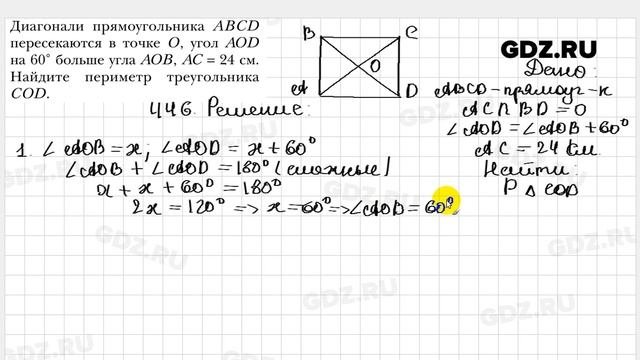 Диагонали прямоугольника ABCD
пересекаются в точке O, угол AOD
на 60° больше угла AOB, AC = 24 см.
Найдите периметр треугольника
COD.
B
C
O
A
D
GDZ.RU
Дано:
ABCD - прямоуг-к
AC ∩ BD = O
∠AOD = ∠AOB + 60°
AC = 24 см
Найти:
P △ COD
446. Решение:
1. ∠AOB = x; ∠AOD = x + 60°
∠AOB + ∠AOD = 180° (смежные)
x + x + 60° = 180°
2x = 120° => x = 60° => ∠AOB = 60°